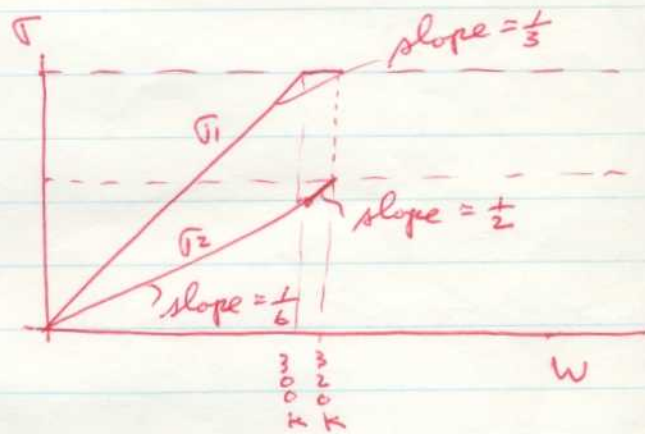 σ
slope = 1/3
σ1
slope = 1/2
σ2
slope = 1/6
300K
320K
W